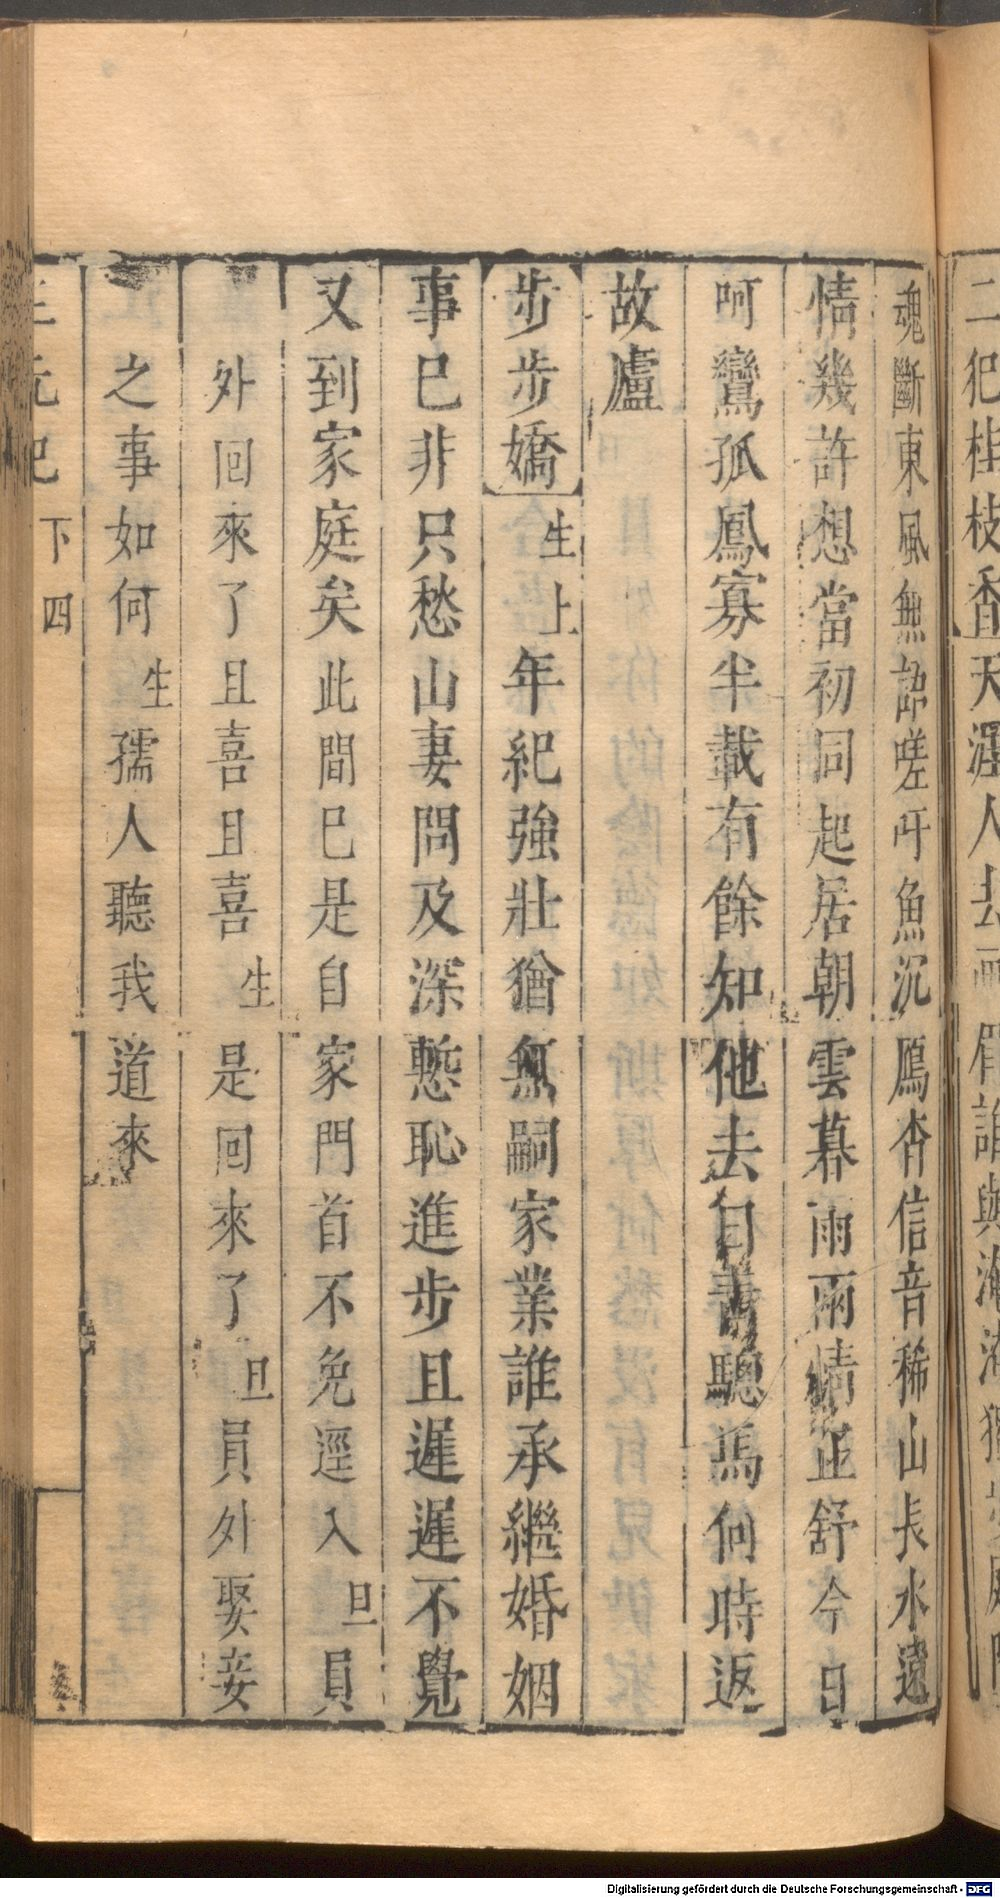 二犯桂枝香天涯人去
魂斷東風無語嗟吁魚沉鴈杳信音稀山長水遠
情幾許想當初同起居朝雲暮雨雨情正舒今日
呵鸞孤鳳寡半載有餘知他去自青驄馬何時返
故廬
步步嬌生上年紀強壯猶無嗣家業誰承繼婚姻
事已非只愁山妻問及深慙恥進步且遲遲不覺
又到家庭矣此間已是自家門首不免逕入旦員
外回來了且喜且喜生是回來了旦員外娶妾
之事如何生孺人聽我道來
三元記 下 四
Digitalisierung gefördert durch die Deutsche Forschungsgemeinschaft - DFG